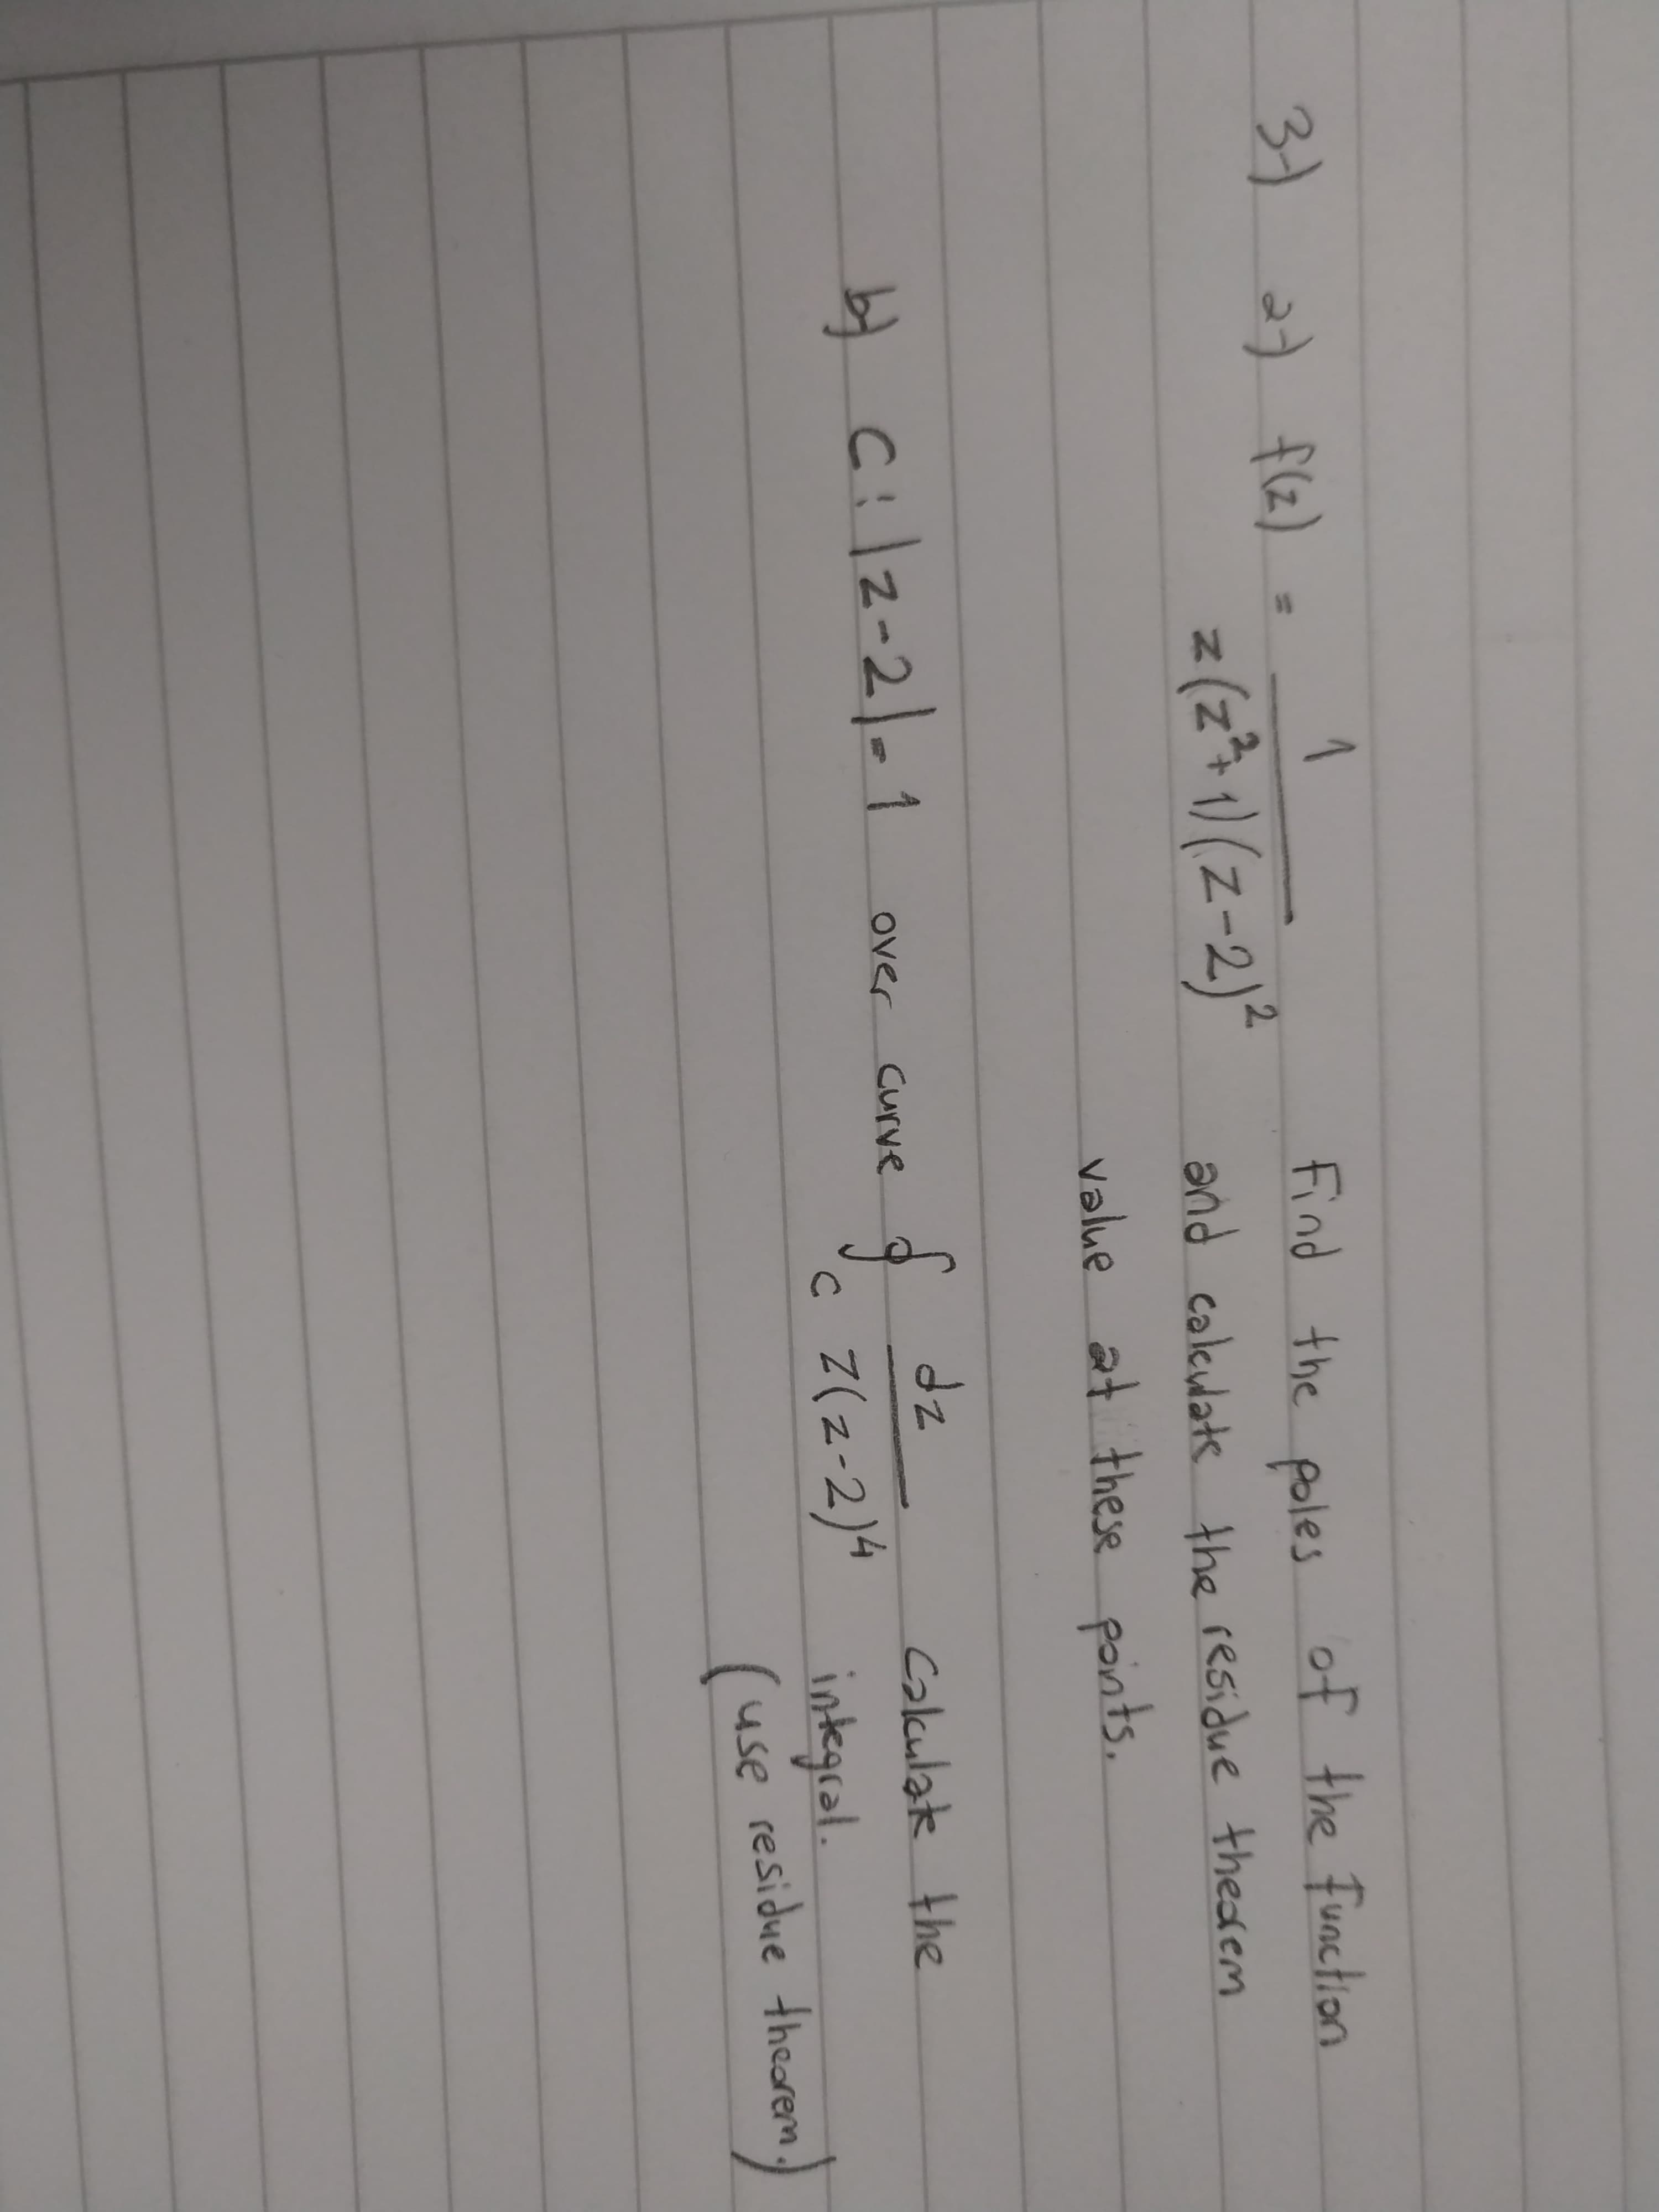 3-) a-) f(z) = 1 / z(z²+1)(z-2)² Find the poles of the function
and calculate the residue theorem
value at these points.
b) C: |z-2|=1 over curve ∮_C dz / z(z-2)⁴ Calculate the
integral.
(use residue theorem.)